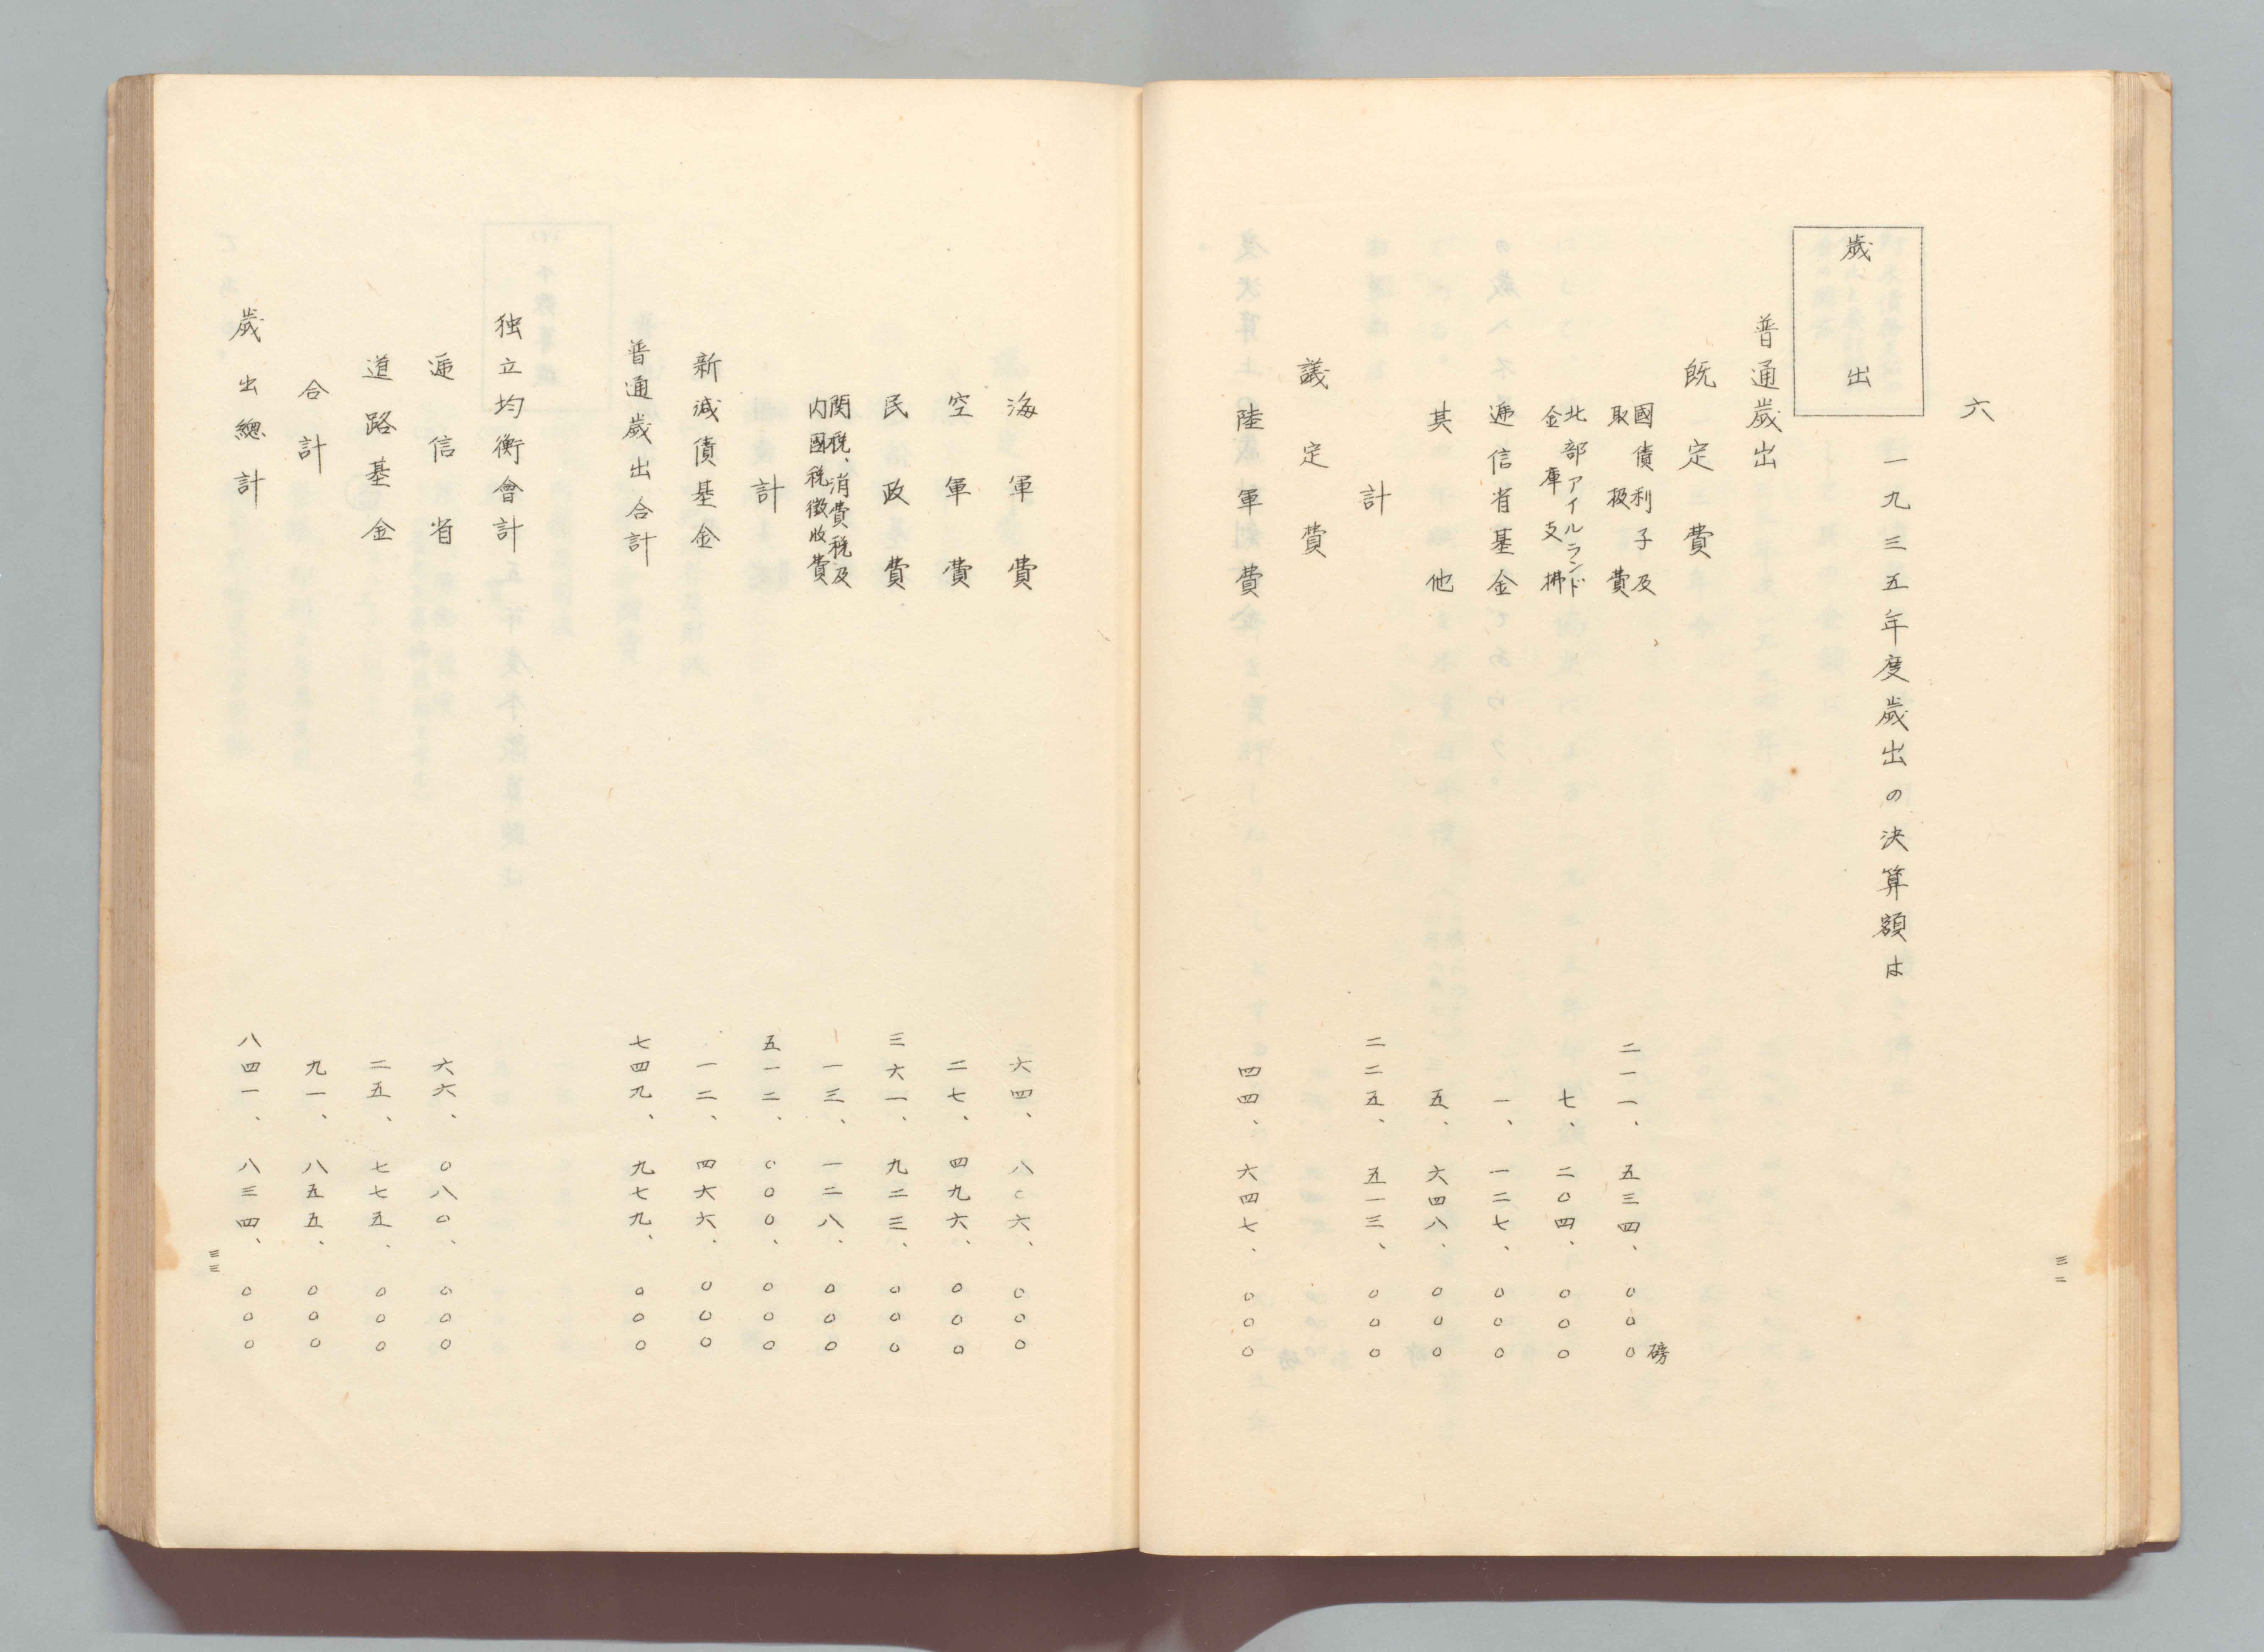 六
歳出
一九三五年度歳出の決算額は
普通歳出
既定費
國債利子及
取扱費
二一一、五三四、〇〇〇磅
北部アイルランド
金庫支拂
七、二〇四、〇〇〇
逓信省基金
一、一二七、〇〇〇
其他
五、六四八、〇〇〇
計
二二五、五一三、〇〇〇
議定費
陸軍費
四四、六四七、〇〇〇
三二
海軍費
六四、八〇六、〇〇〇
空軍費
二七、四九六、〇〇〇
民政費
三六一、九二三、〇〇〇
関税、消費税及
内國税徴收費
一三、一二八、〇〇〇
計
五一二、〇〇〇、〇〇〇
新減債基金
一二、四六六、〇〇〇
普通歳出合計
七四九、九七九、〇〇〇
独立均衡會計
逓信省
六六、〇八〇、〇〇〇
道路基金
二五、七七五、〇〇〇
合計
九一、八五五、〇〇〇
歳出總計
八四一、八三四、〇〇〇
三三